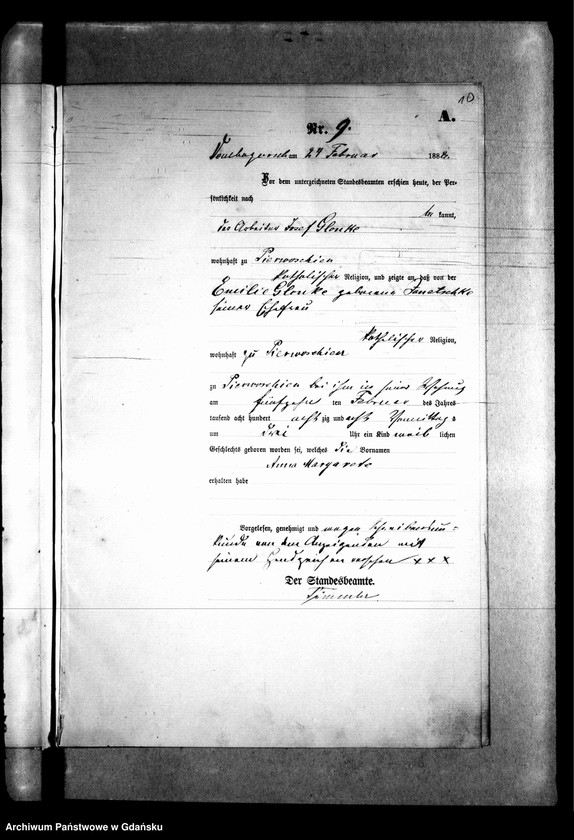 10
A.
Nr. 9.
am 24 Februar 188
Vor dem unterzeichneten Standesbeamten erschien heute, der Per-
sönlichkeit nach
be kannt,
der Arbeiter Josef Glonke
wohnhaft zu Pierwoschin
katholischer Religion, und zeigte an, daß von der
Emilie Glonke geborene
seiner Ehefrau
katholischer Religion,
wohnhaft zu Pierwoschin
zu Pierwoschin bei ihm in seiner Wohnung
am fünfzehn ten Februar des Jahres
tausend acht hundert acht zig und acht Vormittags
um drei Uhr ein Kind weib lichen
Geschlechts geboren worden sei, welches die Vornamen
Anna Margarete
erhalten habe
Vorgelesen, genehmigt und wegen Schreibensun-
kunde von dem Anzeigenden mit
seinem Handzeichen versehen + + +
Der Standesbeamte.
Archiwum Państwowe w Gdańsku